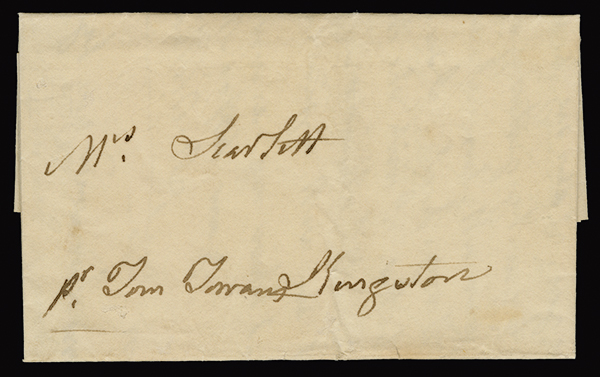 Mrs. Scarlett
pr. Tom Kingston